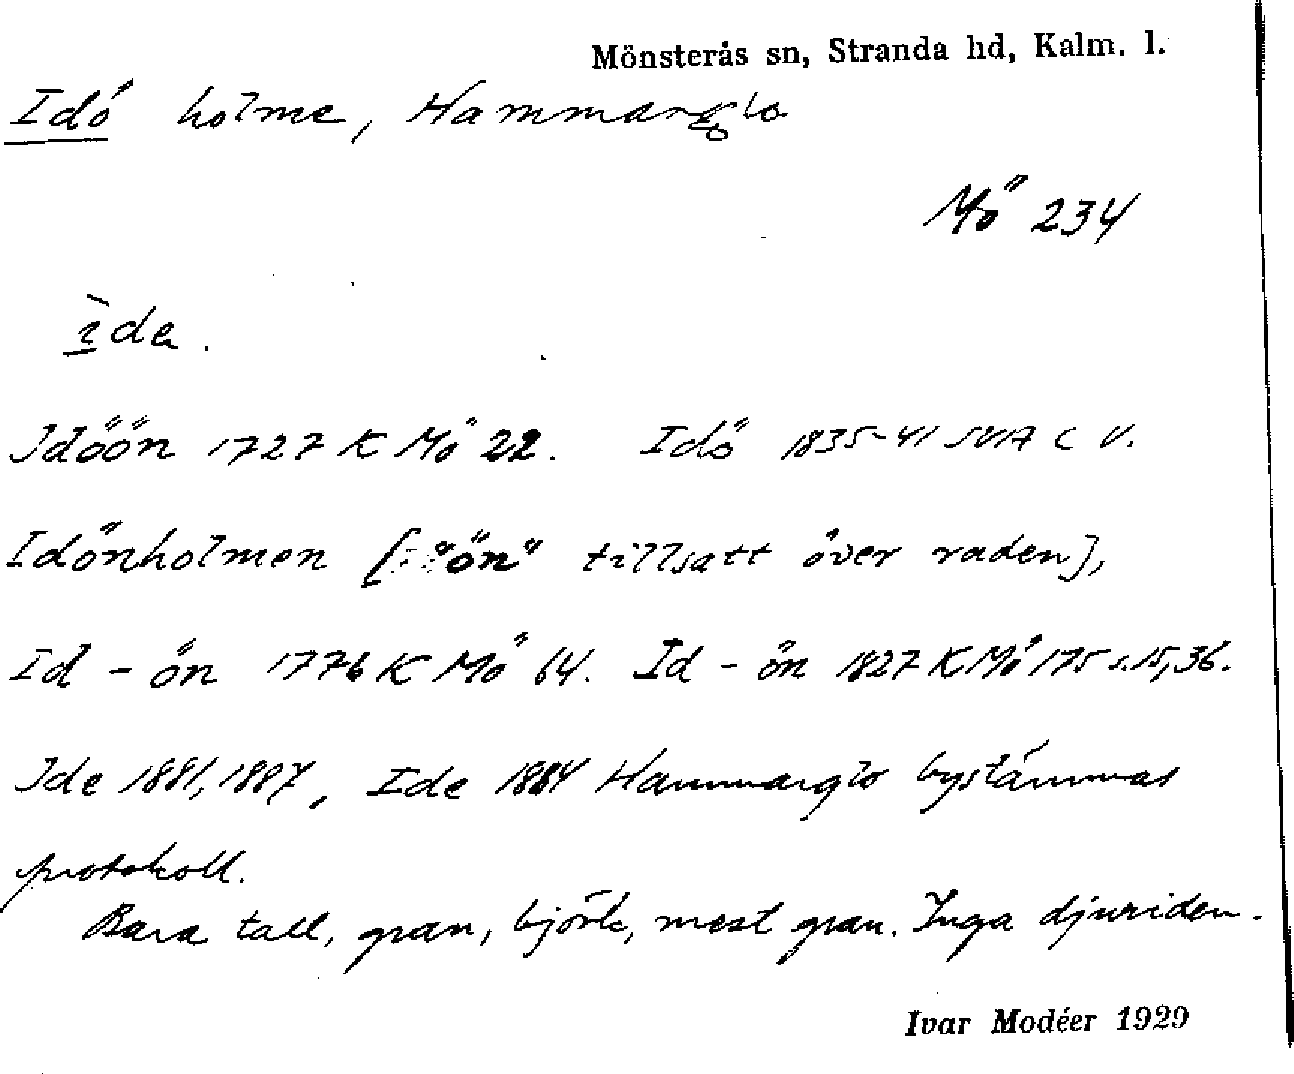 Mönsterås sn, Stranda hd, Kalm. l.
Idö holme, Hammarglo
Mö 234
ìde.
Idöön 1727 K Mö 22. Idö 1835-41 SVA C V.
Idönholmen ["ön" tillsatt över raden],
Id - ön 1776 K Mö 64. Id - ön 1827 K Mö 175 s. 15, 36.
Ide 1881, 1887, Ide 1884 Hammarglo bystämmas
protokoll.
Bara tall, gran, björk, mest gran. Inga djuriden.
Ivar Modéer 1929